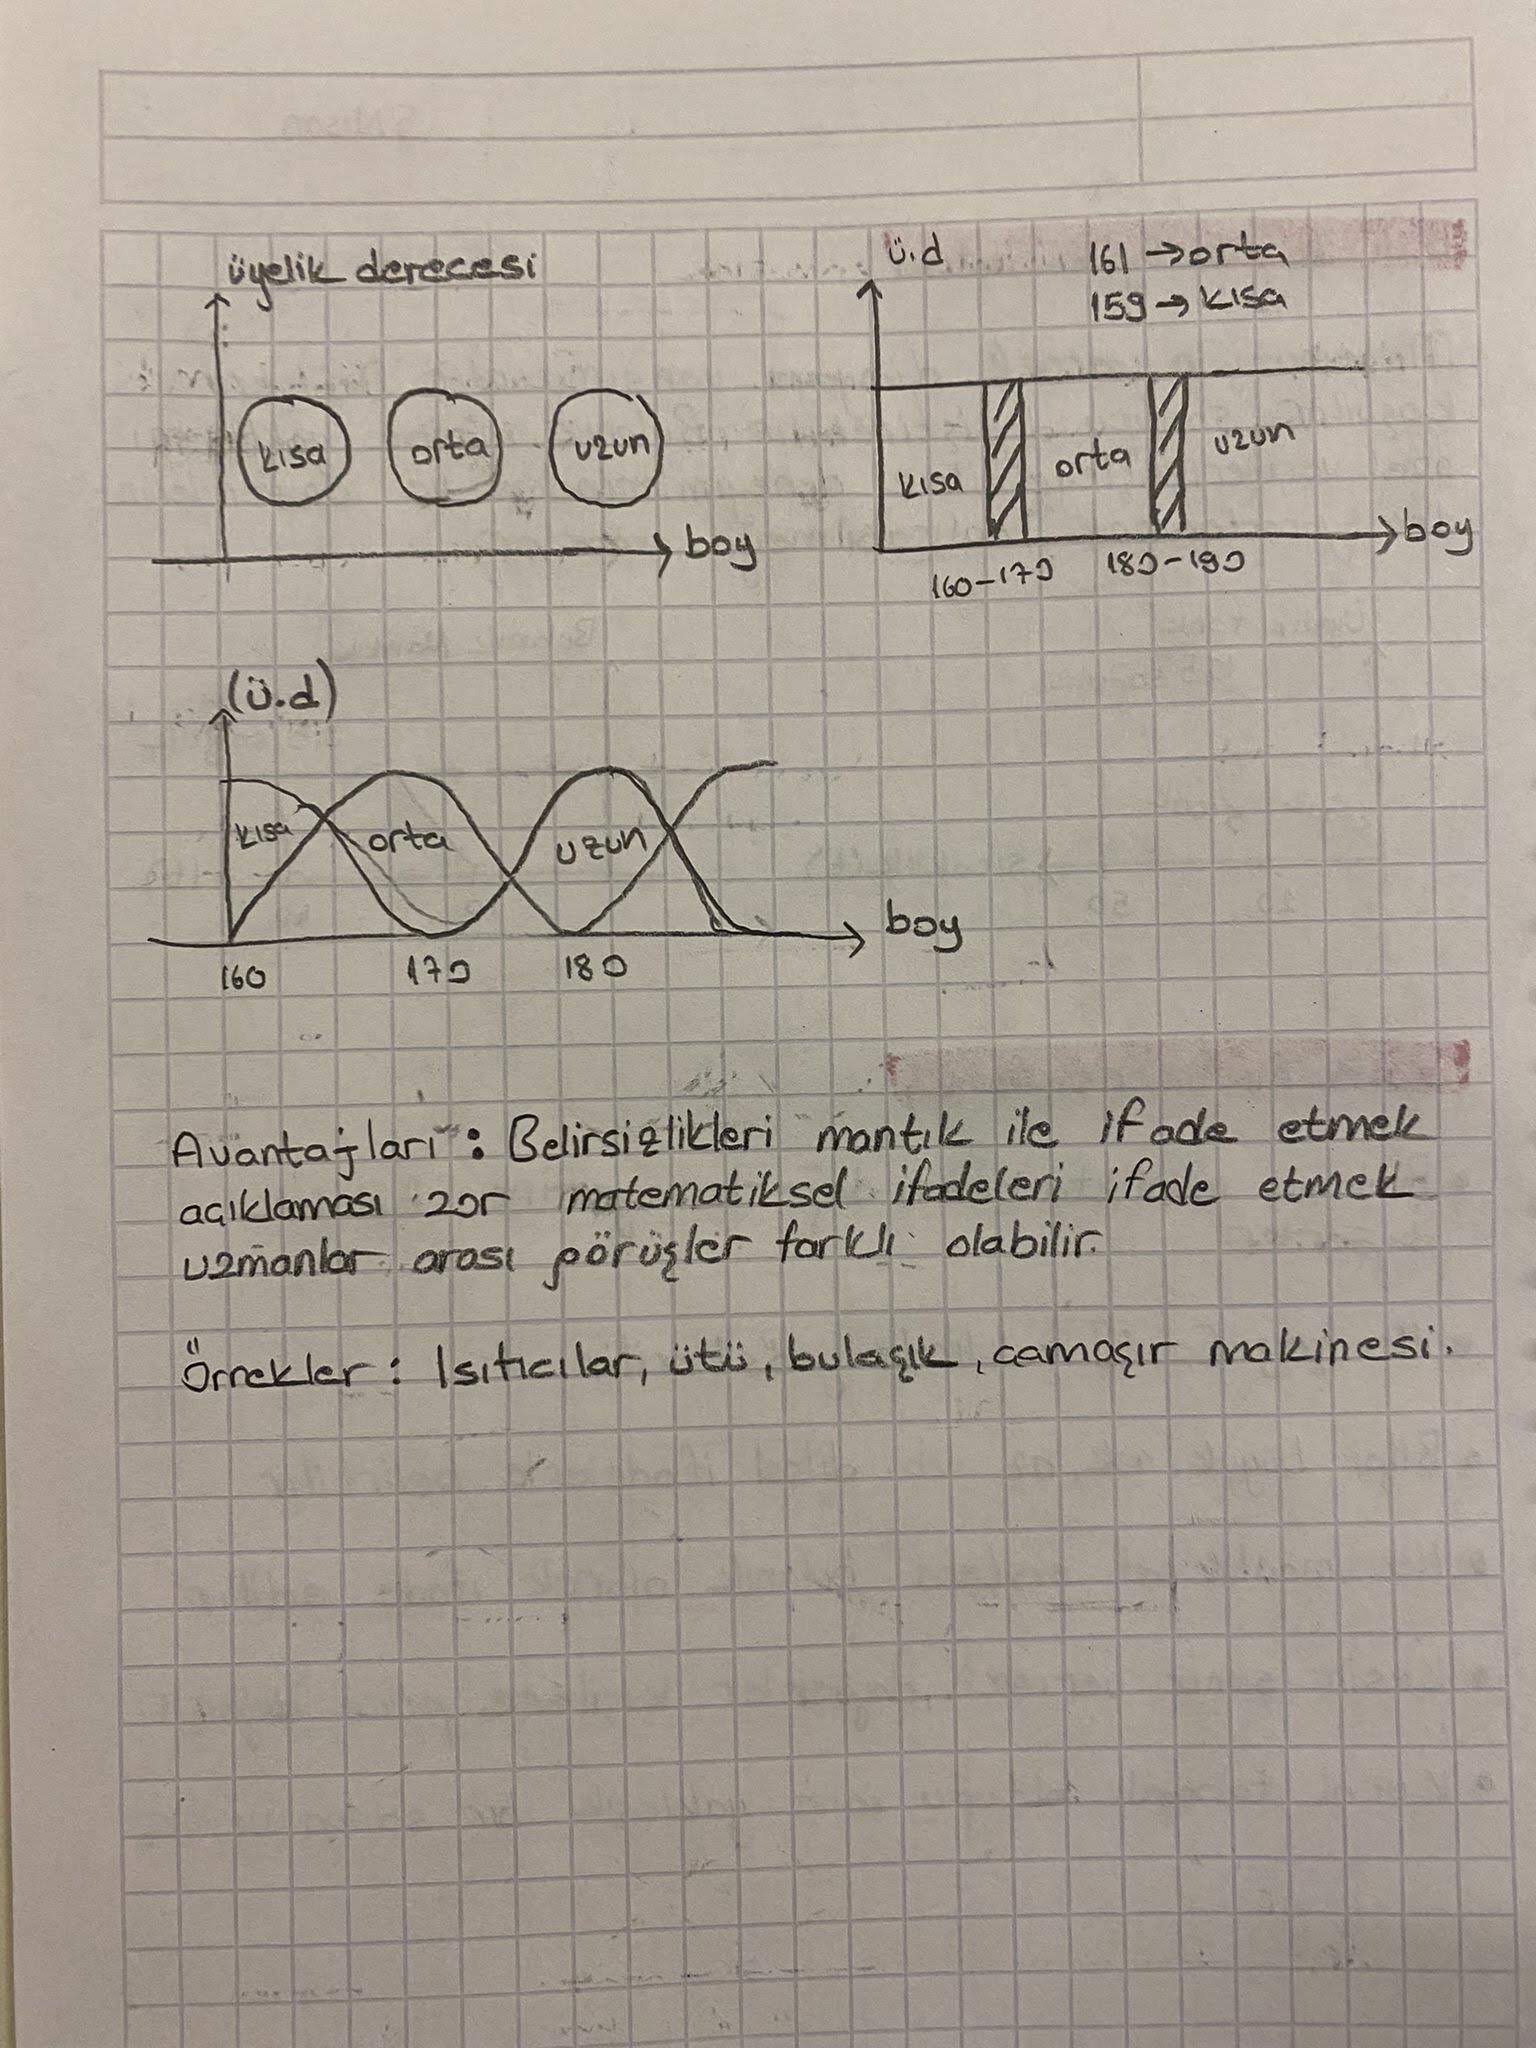 üyelik derecesi
kısa orta uzun
boy
ü.d
161 → orta
159 → kısa
kısa orta uzun
boy
160-170 180-190
(ü.d)
kısa orta uzun
boy
160 170 180
Avantajları : Belirsizlikleri mantık ile ifade etmek
açıklaması zor matematiksel ifadeleri ifade etmek
uzmanlar arası görüşler farklı olabilir.
Örnekler : Isıtıcılar, ütü, bulaşık, çamaşır makinesi.